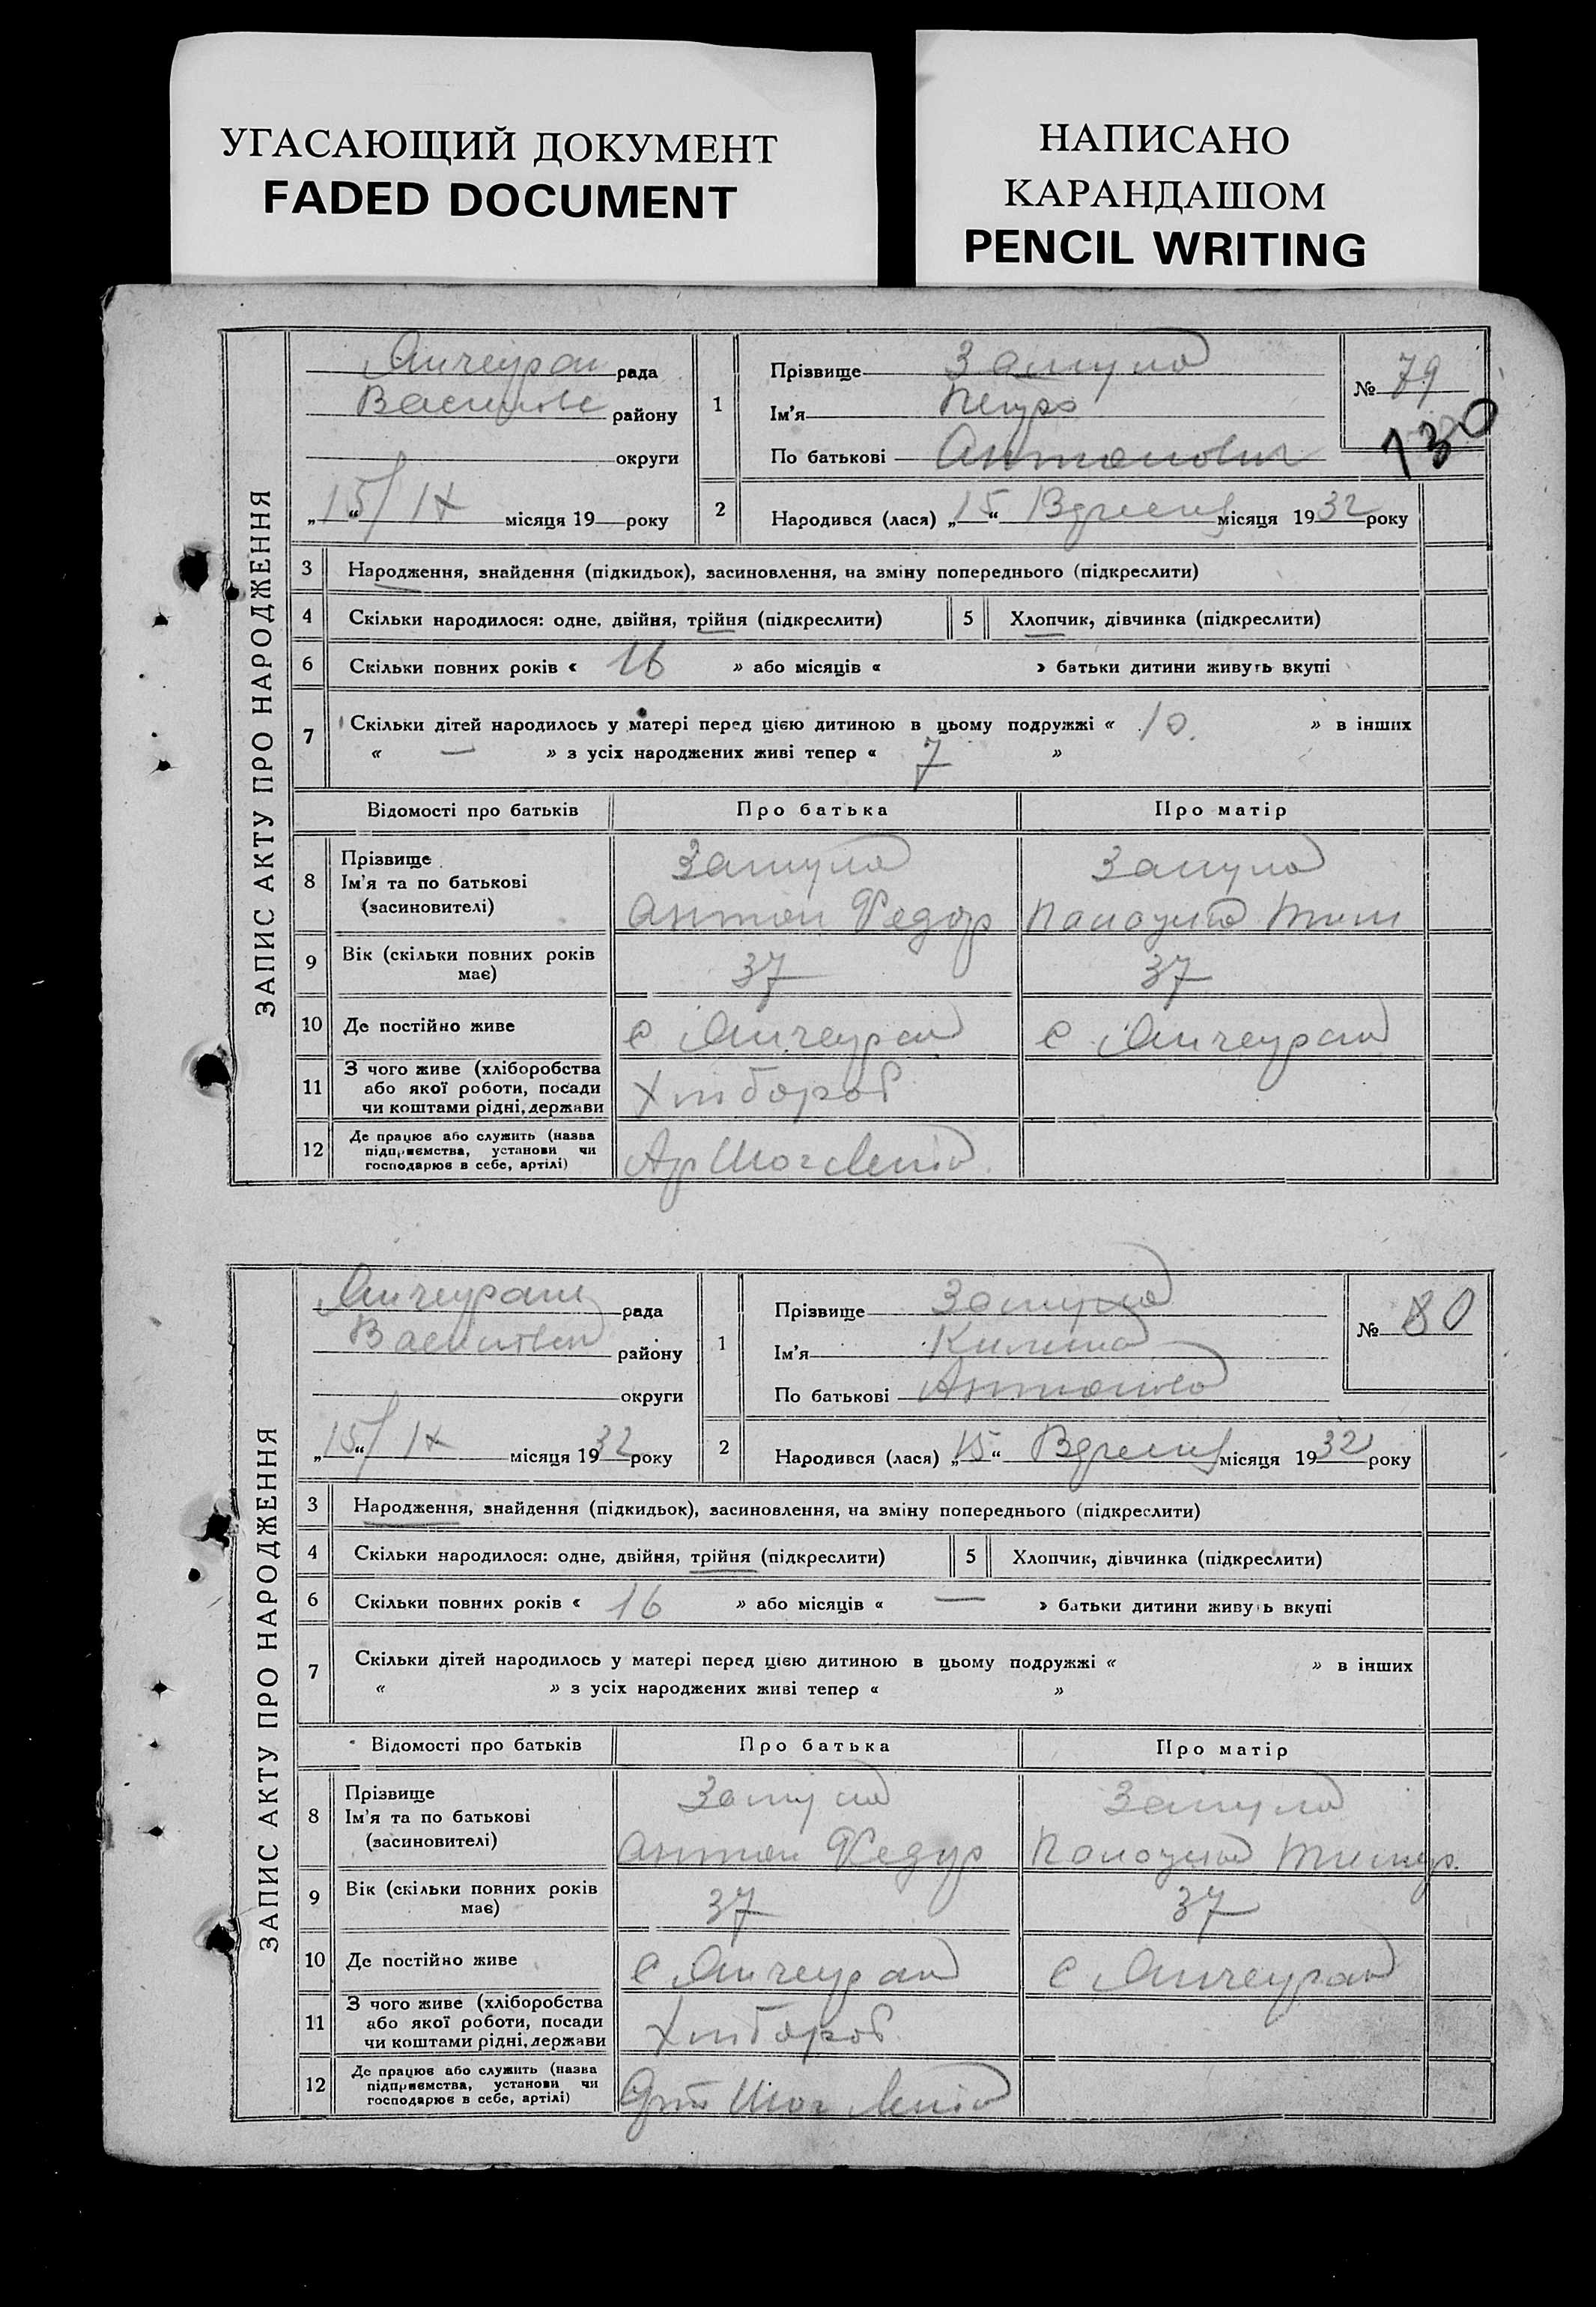 УГАСАЮЩИЙ ДОКУМЕНТ
FADED DOCUMENT
НАПИСАНО
КАРАНДАШОМ
PENCIL WRITING
ЗАПИС АКТУ ПРО НАРОДЖЕННЯ
рада
району
округи
„15“/ IX місяця 19 року
1
Прізвище
Ім'я Петро
По батькові Антонович
№ 79
130
2
Народився (лася) „15“ Вдресня місяця 1932 року
3 Народження, знайдення (підкидьок), засиновлення, на зміну попереднього (підкреслити)
4 Скільки народилося: одне, двійня, трійня (підкреслити)
5 Хлопчик, дівчинка (підкреслити)
6 Скільки повних років « 16 » або місяців « » батьки дитини живуть вкупі
7 Скільки дітей народилось у матері перед цією дитиною в цьому подружжі « 10. » в інших
« — » з усіх народжених живі тепер « 7 »
Відомості про батьків Про батька Про матір
8 Прізвище
Ім'я та по батькові Антон Федор
(засиновителі)
9 Вік (скільки повних років має) 37 37
10 Де постійно живе с с
11 З чого живе (хліборобства
або якої роботи, посади
чи коштами рідні, держави Хлібороб
12 Де працює або служить (назва
підприємства, установи чи
господарює в себе, артілі)
ЗАПИС АКТУ ПРО НАРОДЖЕННЯ
рада
району
округи
„15“/ IX місяця 1932 року
1
Прізвище
Ім'я
По батькові Антонова
№ 80
2
Народився (лася) „15“ Вдресня місяця 1932 року
3 Народження, знайдення (підкидьок), засиновлення, на зміну попереднього (підкреслити)
4 Скільки народилося: одне, двійня, трійня (підкреслити)
5 Хлопчик, дівчинка (підкреслити)
6 Скільки повних років « 16 » або місяців « — » батьки дитини живуть вкупі
7 Скільки дітей народилось у матері перед цією дитиною в цьому подружжі « » в інших
« » з усіх народжених живі тепер « »
Відомості про батьків Про батька Про матір
8 Прізвище
Ім'я та по батькові Антон Федур
(засиновителі)
9 Вік (скільки повних років має) 37 37
10 Де постійно живе с с
11 З чого живе (хліборобства
або якої роботи, посади
чи коштами рідні, держави Хлібороб
12 Де працює або служить (назва
підприємства, установи чи
господарює в себе, артілі)